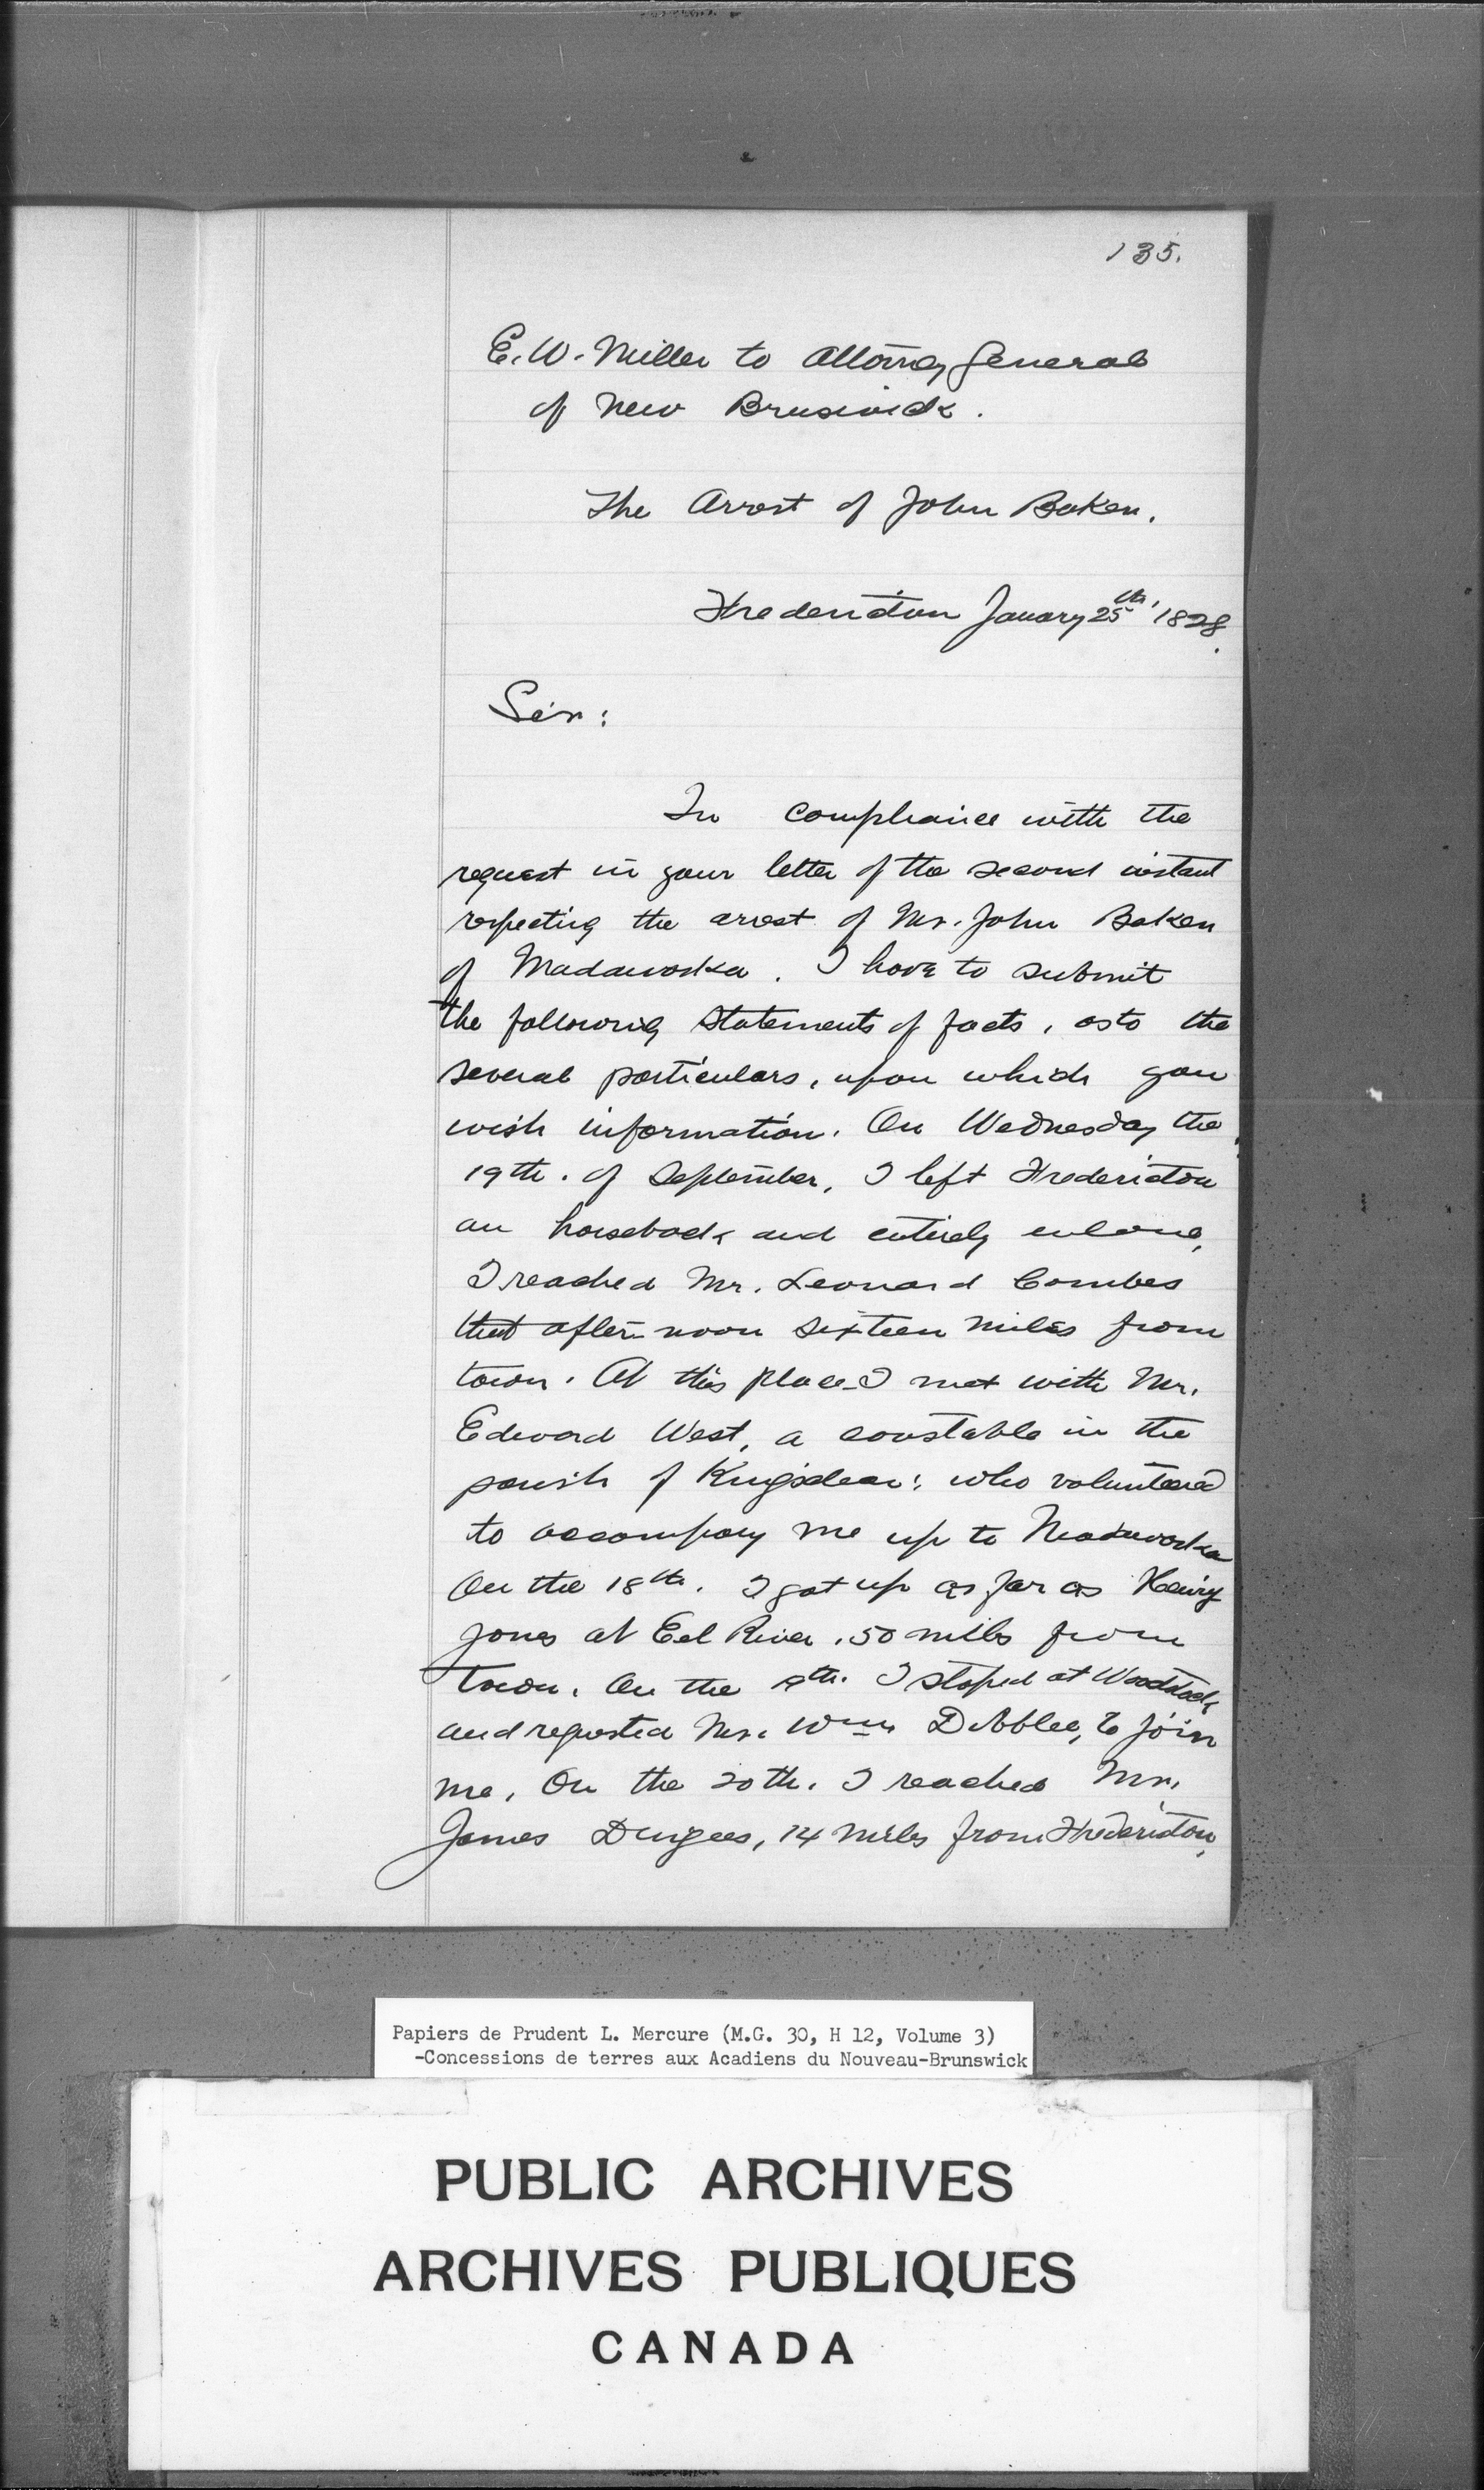 135.
E. W. Miller to Attorney General
of New Bruswick.
The Arrest of John Baker.
Fredericton January 25th, 1828.
Sir:
In compliance with the
request in your letter of the second instant
respecting the arrest of Mr. John Baker
of Madawaska. I have to submit
the following statements of facts, as to the
several particulars, upon which you
wish information. On Wednesday the
19th. of September, I left Fredericton
on horseback and entirely
I reached Mr. Leonard Combes
that afternoon sixteen miles from
town. At this place I met with Mr.
Edward West, a constable in the
parish of Kingsclear: who voluntered
to accompany me up to Madawaska
On the 18th. I got up as far as Henry
Jones at Eel River, 50 miles from
town. On the 9th. I stoped at Woodstock
and requested Mr. Wm Dibblee, to join
me. On the 20th. I reached Mr.
James 14 miles from Fredericton,
Papiers de Prudent L. Mercure (M.G. 30, H 12, Volume 3)
-Concessions de terres aux Acadiens du Nouveau-Brunswick
PUBLIC ARCHIVES
ARCHIVES PUBLIQUES
CANADA